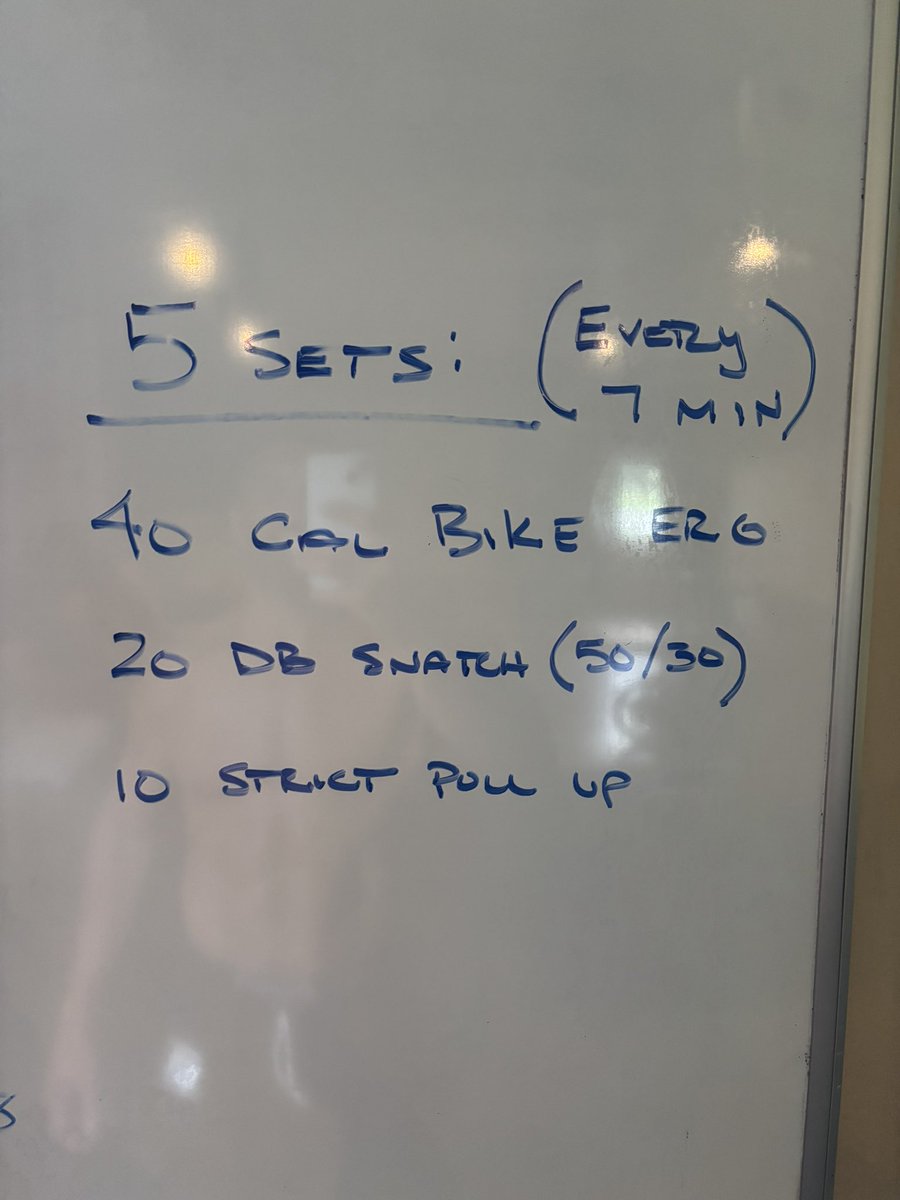 5 SETS: (EVERY
7 MIN)
40 CAL BIKE ERG
20 DB SNATCH (50/30)
10 STRICT PULL UP